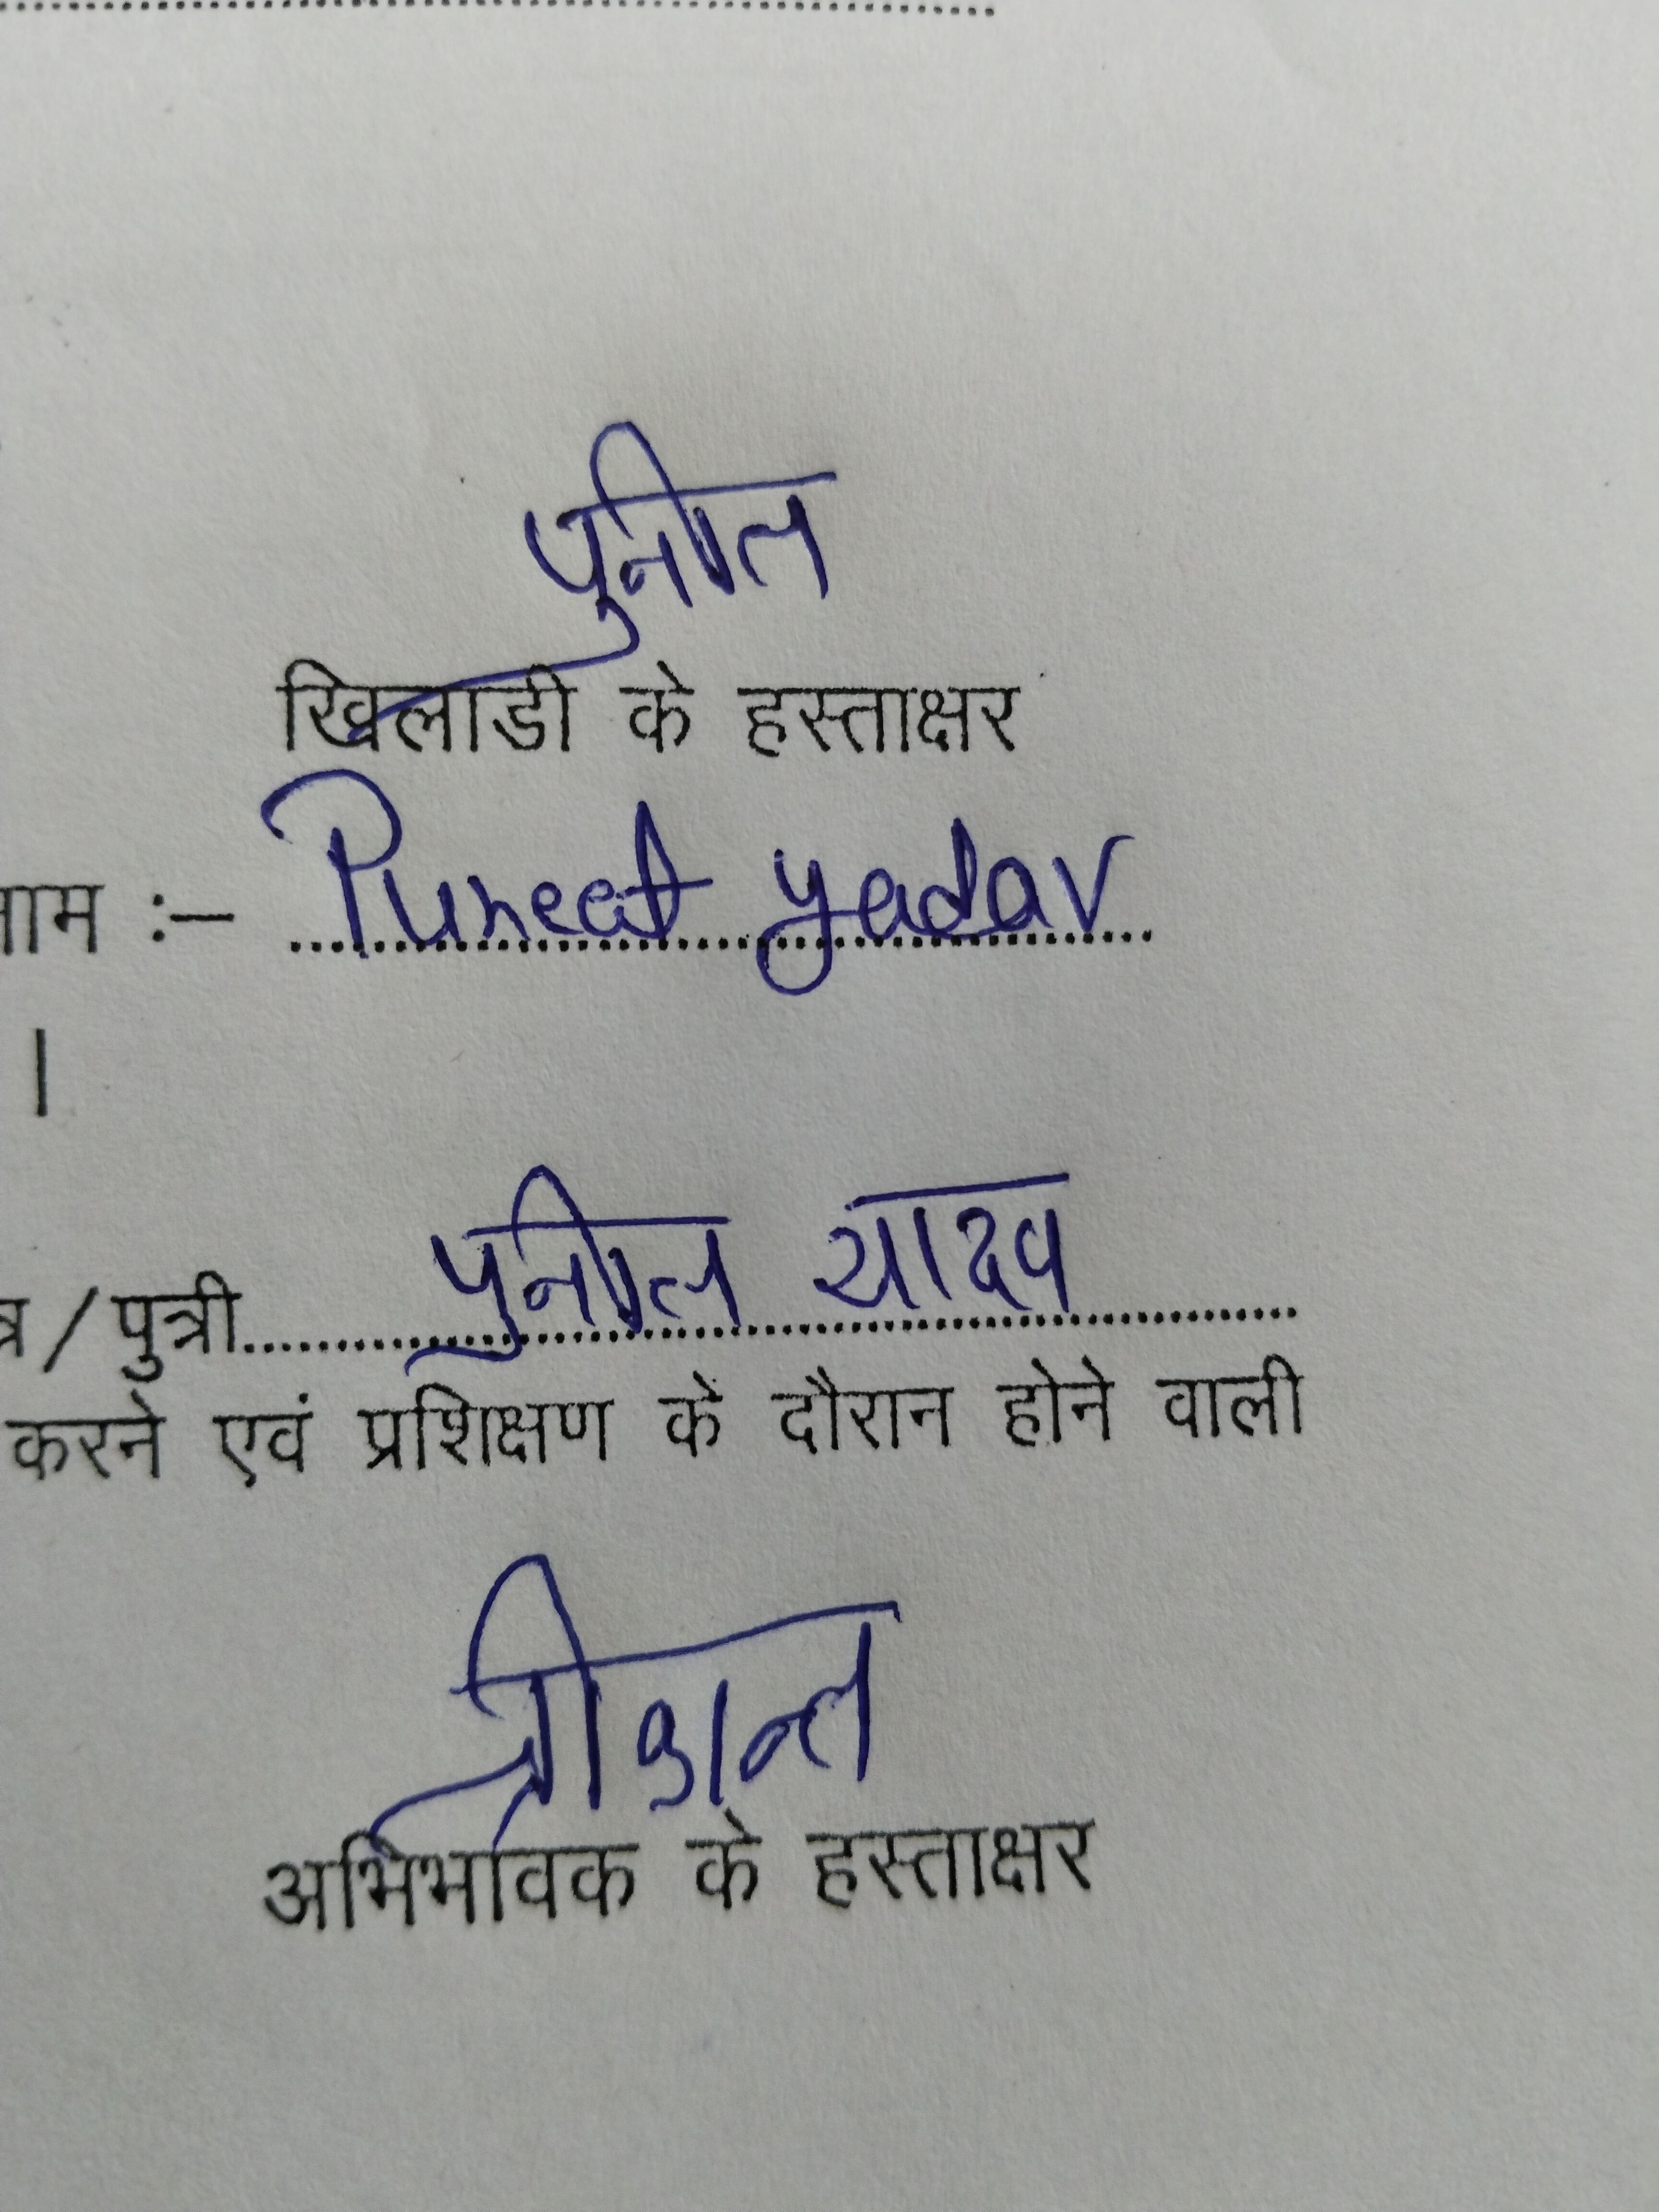 पुनीत
खिलाडी के हस्ताक्षर
नाम :– Puneet yadav
।
पुनीत यादव
/ पुत्री
करने एवं प्रशिक्षण के दौरान होने वाली
अभिभावक के हस्ताक्षर